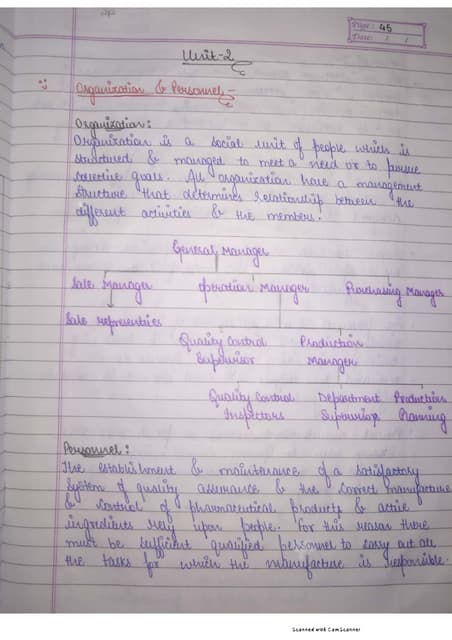 Page: 45
Date: / /
Unit-2
Organization & Personnel-
Organization:
Organization is a social unit of people which is
structured & managed to meet a need or to pursue
collective goals. All organization have a management
structure that determines relationship between the
different activities & the members.
General Manager
Sale Manager Operation Manager Purchasing Manager
Sale representies
Quality Control Production
Supervisor Manager
Quality Control Department Production
Inspectors Supervisor Planning
Personnel:
The establishment & maintanance of a satisfactory
System of quality assurance & the correct manufacture
& control of pharmaceutical products & active
ingredients rely upon people. For this reason there
must be sufficient qualified personnel to carry out all
the tasks for which the manufacture is responsible.
Scanned with CamScanner